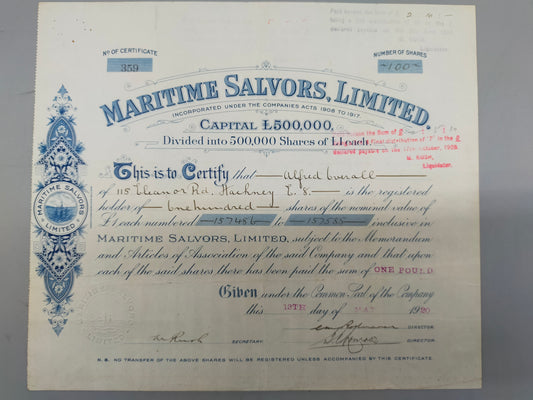 Nº OF CERTIFICATE
359
NUMBER OF SHARES
100
MARITIME SALVORS, LIMITED.
INCORPORATED UNDER THE COMPANIES ACTS 1908 TO 1917.
CAPITAL £500,000,
Divided into 500,000 Shares of £1 each.
the Sum of £
final distribution of
declared payable on the October, 1928.
Liquidator.
This is to Certify that Alfred Overall
of 115 Eleanor Rd, Hackney E.8. is the registered
holder of One hundred shares of the nominal value of
£1 each numbered 157456 to 157555 inclusive in
MARITIME SALVORS, LIMITED, subject to the Memorandum
and Articles of Association of the said Company and that upon
each of the said shares there has been paid the sum of ONE POUND
Given under the Common Seal of the Company
this 13TH day of MAY 1920
DIRECTOR
SECRETARY
DIRECTOR
N.B. NO TRANSFER OF THE ABOVE SHARES WILL BE REGISTERED UNLESS ACCOMPANIED BY THIS CERTIFICATE.
MARITIME SALVORS
LIMITED